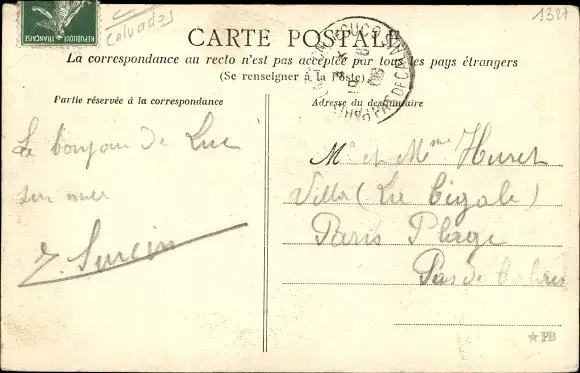 Calvados
1327
RÉPUBLIQUE FRANÇAISE
CARTE POSTALE
La correspondance au recto n'est pas acceptée par tous les pays étrangers
(Se renseigner à la Poste)
Partie réservée à la correspondance
Le bonjour de Luc
sur mer
Adresse du destinataire
Mr et Mme Huret
Villa (La Cigale)
Paris Plage
Pas de Calais
PB